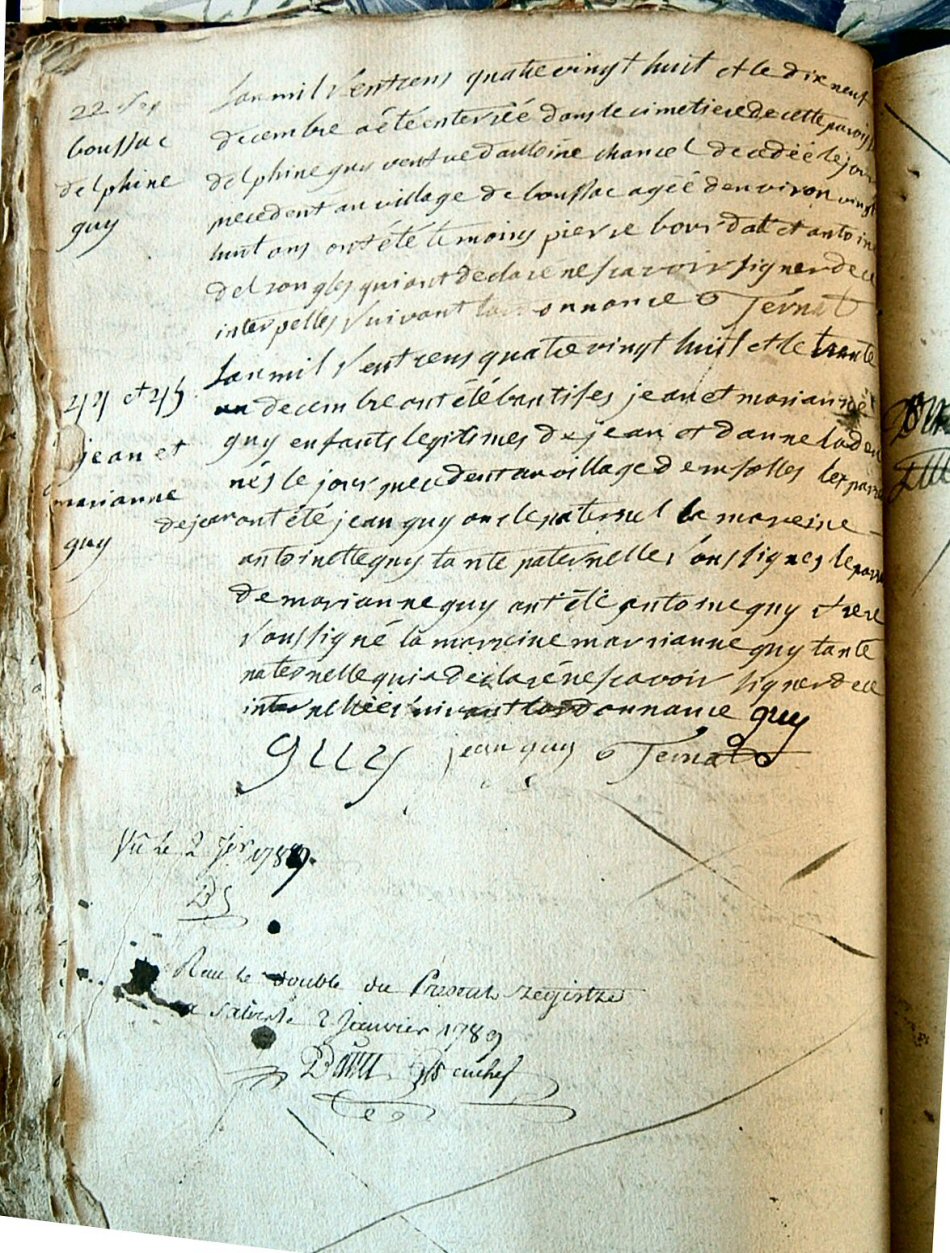 22 Sep
boussac
delphine
guy
Lan mil Sept cens quatre vingt huit et le dix neuf
decembre a été enterrée dans le cimetiere de cette paroiss
delphine guy veufve dantoine chancel decedée le jour
precedent au village de boussac agée denviron vingt
huit ans ont été temoins pierre et antoin
qui ont declaré ne scavoir signer de ce
interpelles suivant lordonnance
44 et 45
jean et
marianne
guy
Lan mil Sept cens quatre vingt huit et le trante
un decembre ont été batises jean et marianne
guy enfants legitimes de jean et danne
nés le jour precedent au village les parr
de jean ont été jean guy oncle paternel la mareine
antoinette guy tante paternelle sousignes le parr
de marianne guy ont été antoine guy frere
sousigné la marreine marianne guy tante
paternelle qui a declaré ne scavoir signer de ce
interpellée suivant lordonnance guy
guy jean guy
Vû le 2 1789.
Reçu le double du Présent Registre
2 Janvier 1789